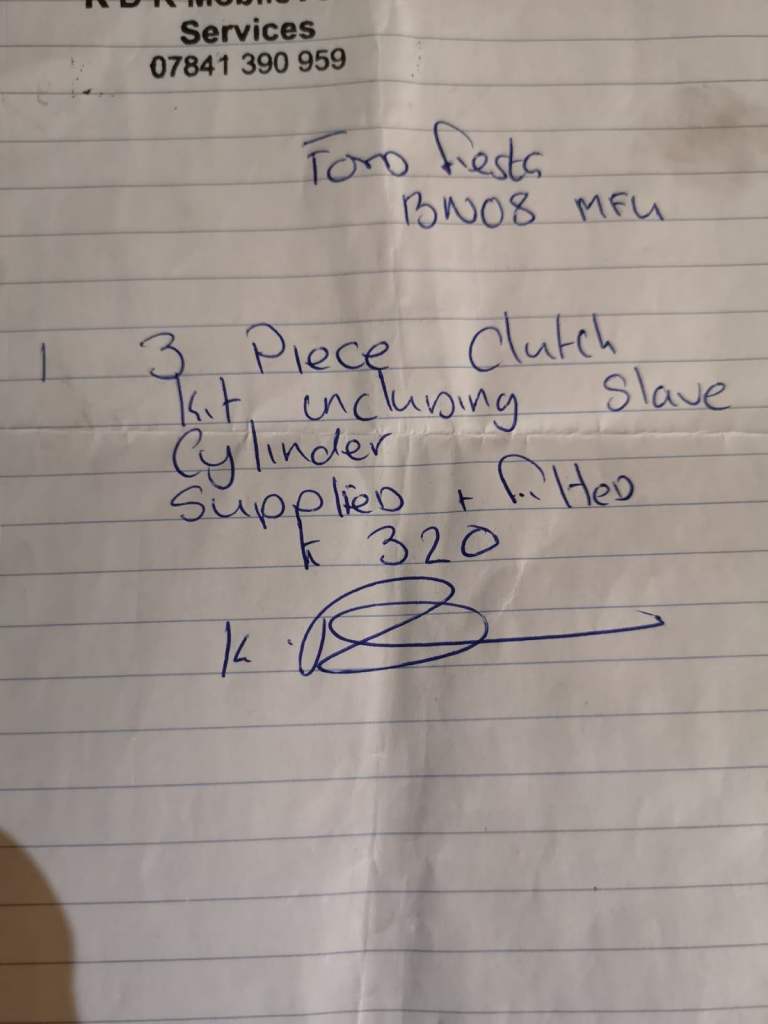 Services
07841 390 959
Ford Fiesta
BN08 MFU
1 3 Piece Clutch
Kit including Slave
Cylinder
Supplied + fitted
£ 320
K.